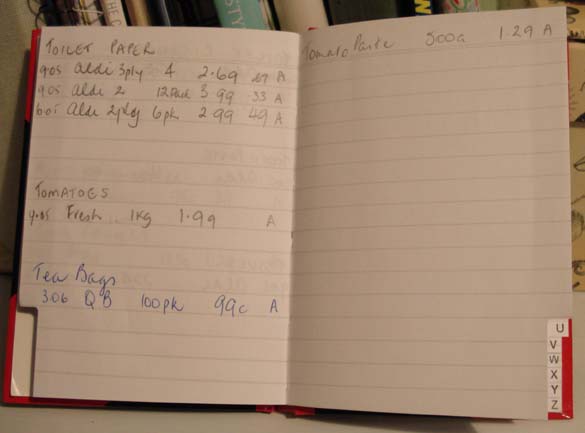 TOILET PAPER
905 Aldi 3ply 4 2.69 .67 A
905 Aldi 2 12 Pack 3 99 .33 A
605 Aldi 2ply 6pk 2.99 49 A
TOMATOES
Fresh 1kg 1.99 A
Tea Bags
306 QB 100pk 99c A
Tomato Paste 500g 1.29 A
U
V
W
X
Y
Z